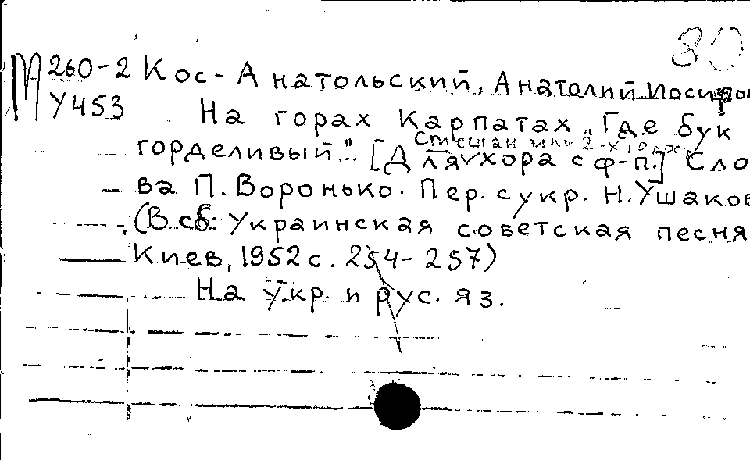 80
М 260-2 Кос-Анатольский, Анатолий Иосипов
У453 На горах Карпатах „Где бук
горделивый". [Для хора с ф-п.] Сло-
ва П. Воронько. Пер. с укр. Н. Ушаков
(В сб: Украинская советская песня
Киев, 1952 с. 254-257)
На укр. и рус. яз.